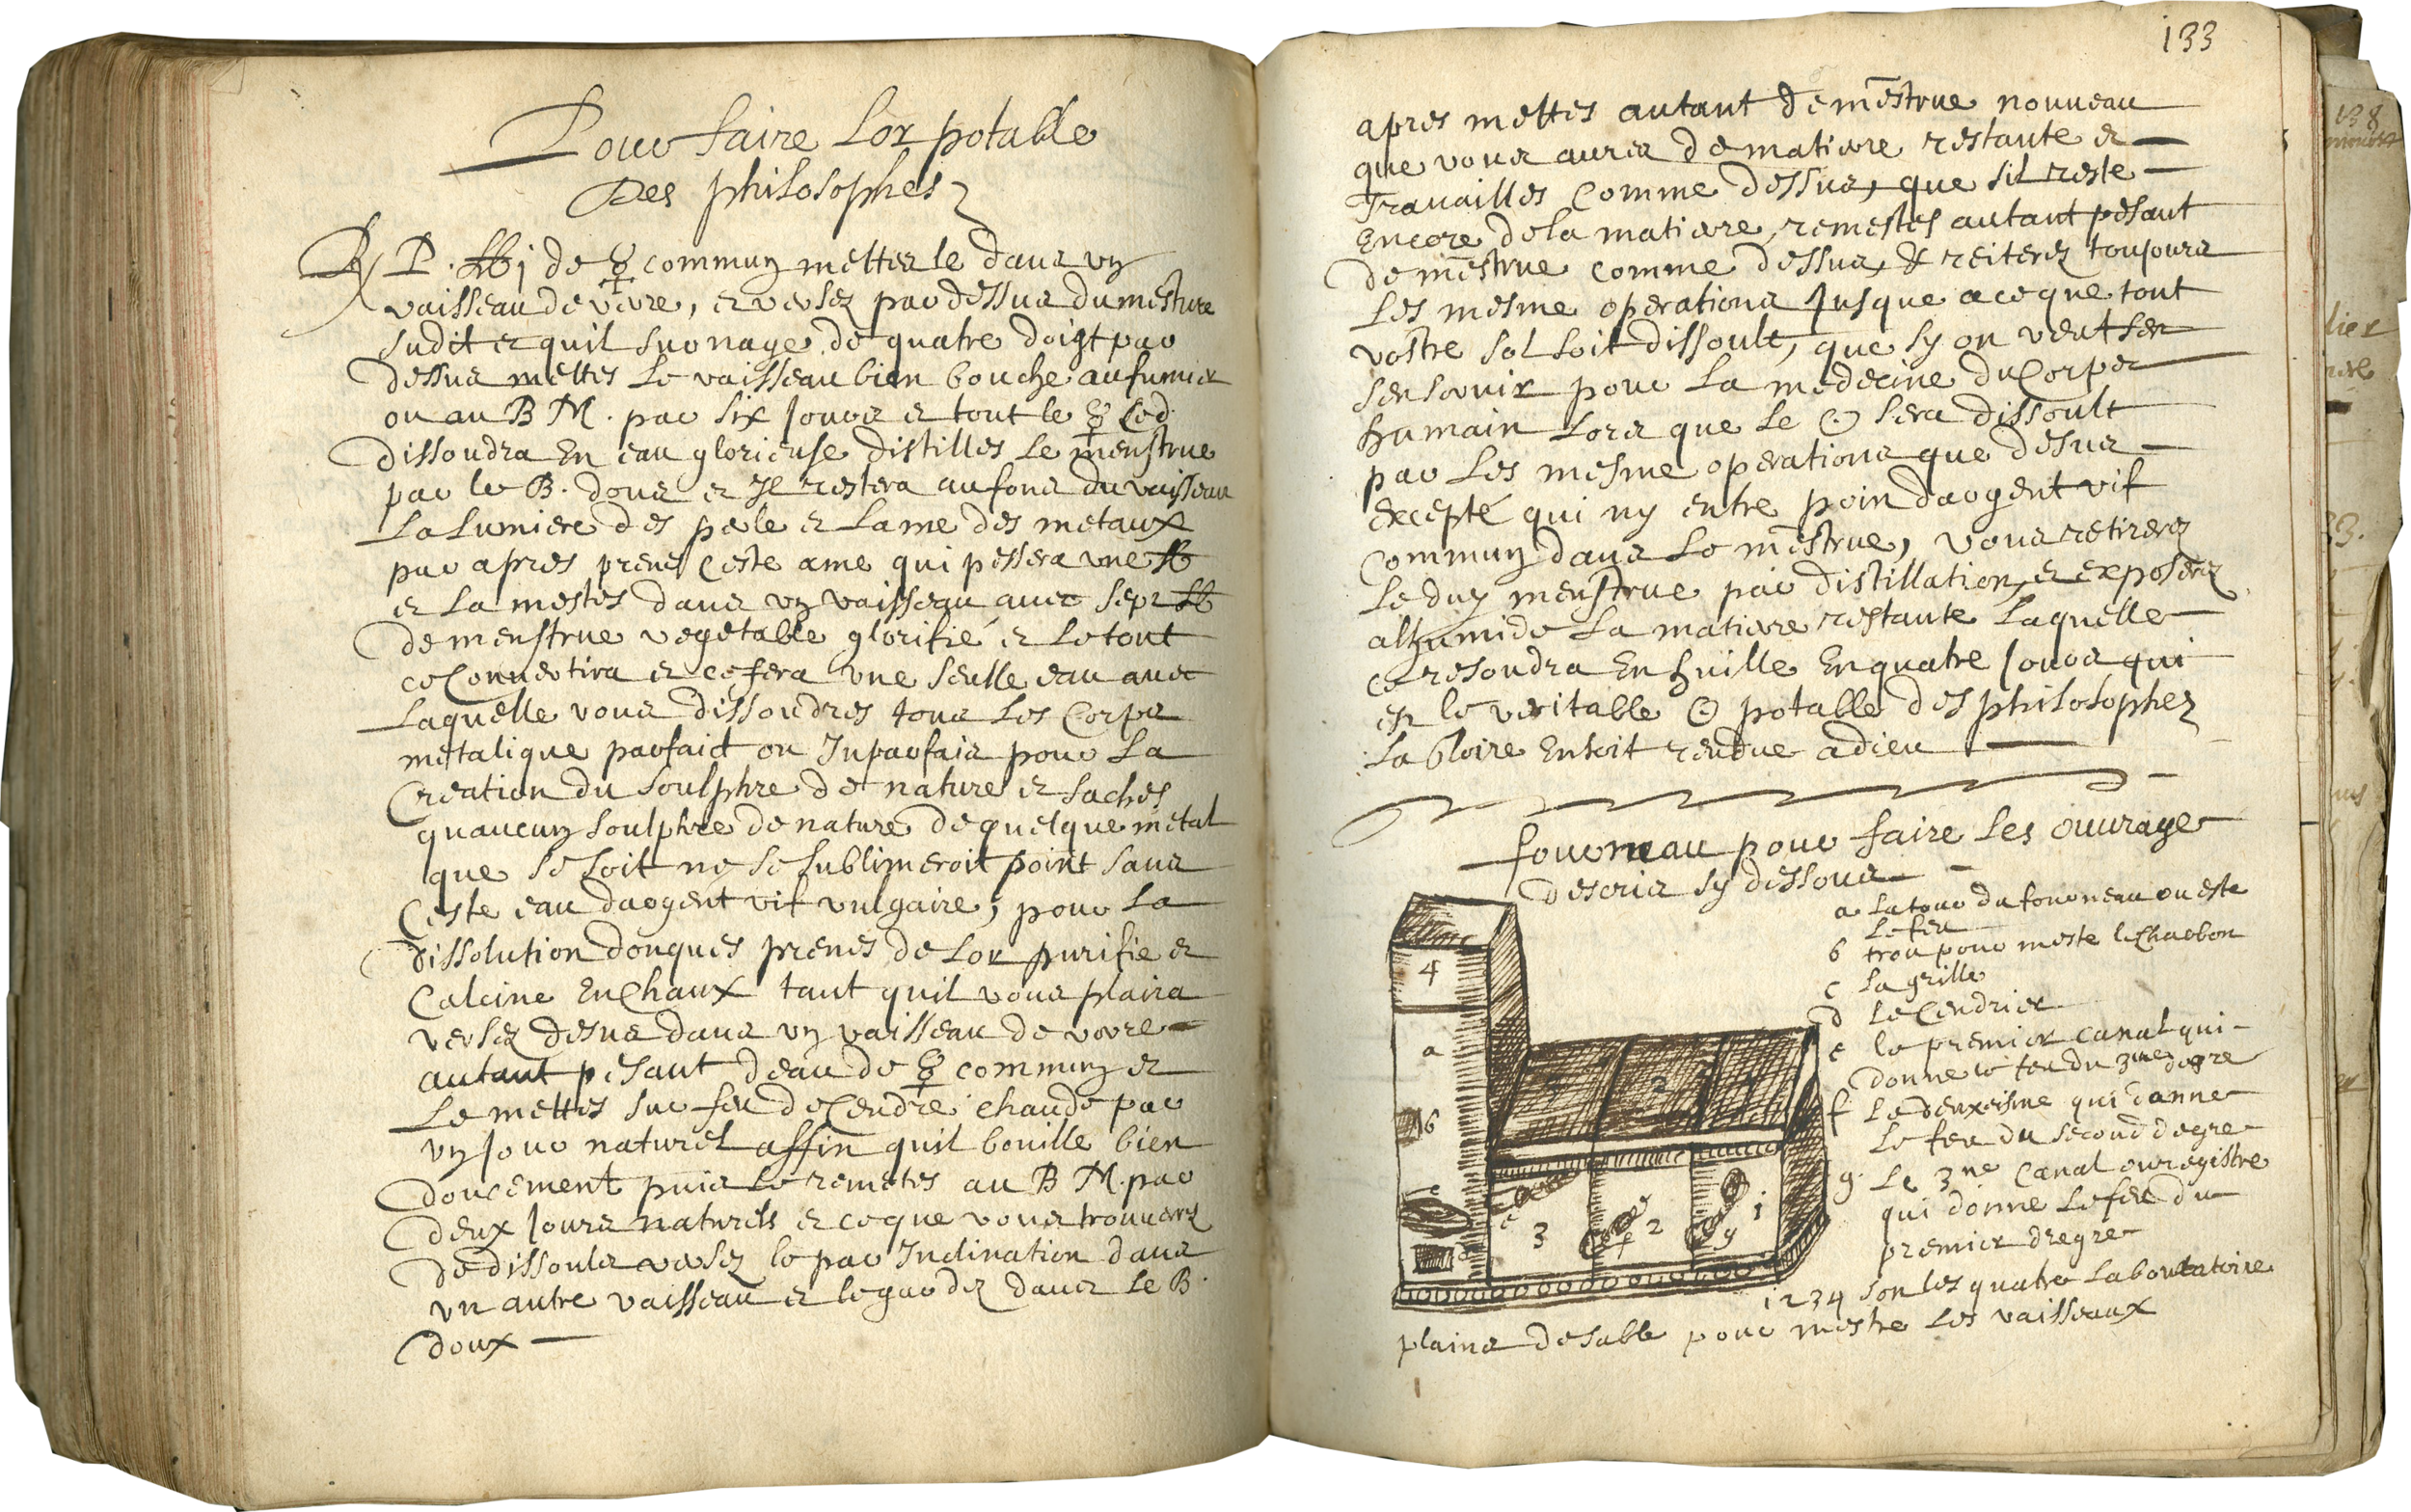 Pour faire Lor potable
Des philosophes
℞ P. ℔ j de ☿ commun mettes le dans un
vaisseau de verre, et versez par dessus du mestrue
sudit et quil surnage de quatre doigt par
dessus mettes le vaisseau bien bouche au fumier
ou au B M. par six jours et tout le ☿ ced
dissoudra En eau glorieuse distilles le menstrue
par le B. dous et Il restera au fons du vaisseau
La Lumiere des perle et Lame des metaux
par apres prenes Ceste ame qui pessera une ℔
et La mestes dans un vaisseau avec sept ℔
de menstrue vegetable glorifié et Le tout
ce Convertira et ce fera une seulle eau avec
Laquelle vous dissoudres tous Les Corps
metalique parfaict ou Inparfais pour La
Creation du soulphre de nature et saches
quaucun soulphre de nature de quelque metal
que se soit ne se sublimeroit point sans
Ceste eau dargent vif vulgaire, pour La
dissolution donques prenes de Lor purifie et
Calcine En Chaux tant quil vous plaira
versez desus dans un vaisseau de verre
autant pesant deau de ☿ commun et
Le mettes sur feu de Cendre chaude par
un jour naturel affin quil bouille bien
doucement puis Le remetes au B M. par
deux jours naturels et ce que vous trouverez
de dissoult versez le par Inclination dans
un autre vaisseau et le gardez dans le B.
doux
133
apres mettes autant de mẽstrue nouveau
que vous aures de matiere restante et
Travailles Comme dessus, que sil reste
Encore de la matiere, remestes autant pesant
de mẽstrue comme dessus, & reiterez toujours
Les mesme operations jusque a ce que tout
vostre sol soit dissoult, que sy on veut sen
sen servir pour La medecine du Corps
humain Lors que Le ☉ sera dissoult
par Les mesme operations que desus
excepté qui ny entre poin dargent vif
commun dans Le mẽstrue, vous retirerez
Le dit menstrue par distillation, et exposerez
alhumide La matiere restante Laquelle
ce resoudra En huille En quatre jours qui
est le veritable ☉ potable des philosophez
La Gloire En soit rendue a dieu
fourneau pour faire Les ouvrages
descris sy dessous
a La tour du fourneau ou este
Le feu
b trou pour meste le Charbon
c La grille
d Le Cendrier
e le premier canal qui
donne le feu du 3me degre
f Le deuxeisme qui donne
Le feu du second degre
g. Le 3me Canal ou registre
qui donne Le feu du
premier dregre
1 2 3 4 son les quatre Laboutatoire
plains de sable pour mestre Les vaisseaux
4
a
b
c
e
d
3
f
2
g
1